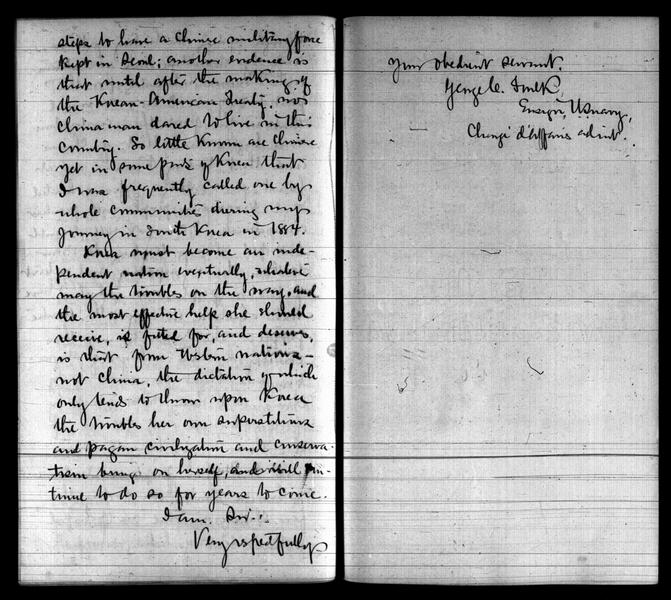 steps to have a Chinese military force
kept in Seoul; another evidence is
that until after the making of
the Korean-American Treaty, no
Chinaman dared to live in this
country. So little known are Chinese
yet in some parts of Korea that
I was frequently called one by
whole communities during my
journey in South Korea in 1884.
Korea must become an inde-
pendent nation eventually, whatever
may the troubles on the way, and
the most effective help she should
receive, is fitted for, and deserves,
is that from Western nations—
not China, the dictation of which
only tends to throw upon Korea
the troubles her own superstitions
and pagan civilization and conserva-
tism brings on herself, and will con-
tinue to do so for years to come.
I am, Sir,
Very respectfully
Your obedient servant.
George C. Foulk,
Ensign, U.S. Navy,
Chargé d'affaires ad int.